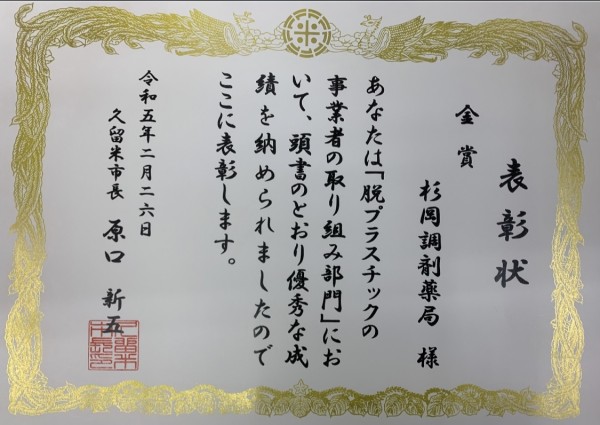 表彰状
金賞
杉岡調剤薬局 様
あなたは「脱プラスチックの
事業者の取り組み部門」にお
いて、頭書のとおり優秀な成
績を納められましたので
ここに表彰します。
令和五年二月二六日
久留米市長 原口 新五